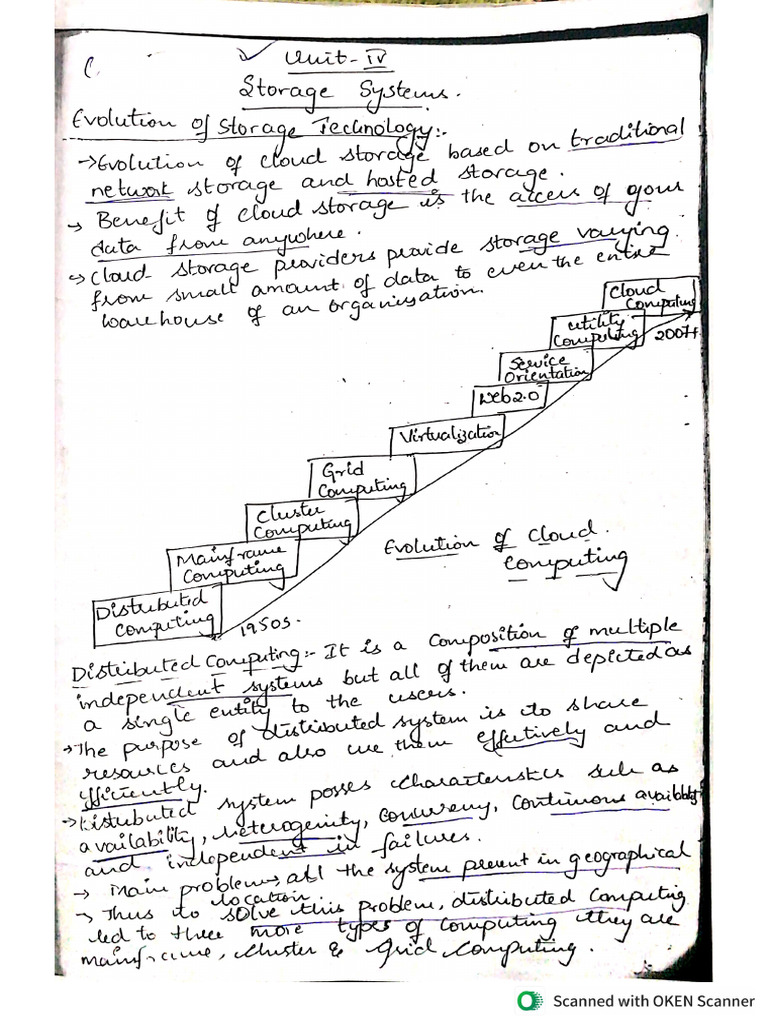 Unit-IV
Storage Systems.
Evolution of Storage Technology:-
→Evolution of cloud storage based on traditional
network storage and hosted storage.
→ Benefit of cloud storage is the access of your
data from anywhere.
→ Cloud storage providers provide storage varying
from small amount of data to even the entire
warehouse of an organisation.
Cloud
Computing
utility
Computing
2007+
Service
Orientation
Web2.0
Virtualization
Grid
Computing
Cluster
Computing
Mainframe
Computing
Distributed
Computing
1950s.
Evolution of Cloud.
Computing
Distributed Computing:- It is a composition of multiple
independent systems but all of them are depicted as
a single entity to the users.
→The purpose of distributed system is to share
resources and also use them effectively and
efficiently.
→Distributed system posses characteristics such as
availability, heterogeinity, concurreny, continuous
and independent in failures.
→ Main problem, all the system present in geographical
location
→ Thus to solve this problem, distributed computing
led to three more types of computing they are
mainframe, cluster & Grid Computing.
Scanned with OKEN Scanner